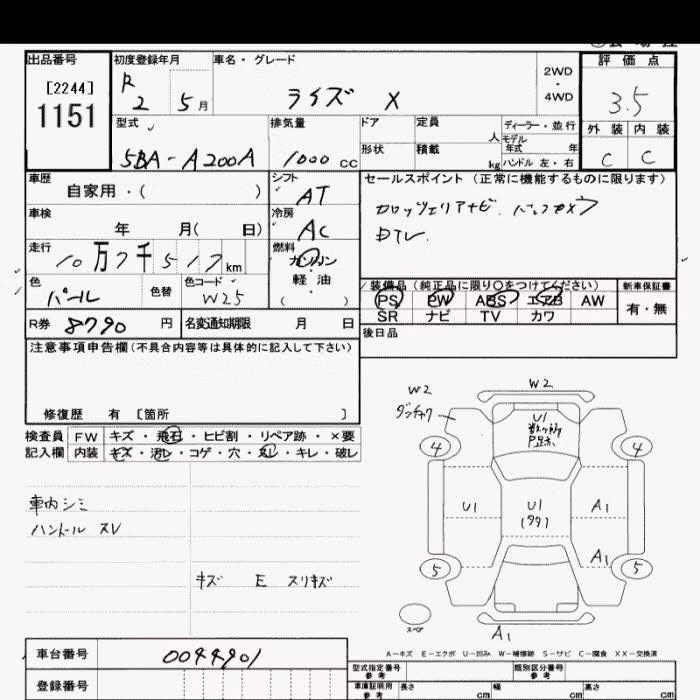 出品番号
[2244]
1151
初度登録年月
R 2 5月
車名・グレード
ライズ X
2WD
・
4WD
評価点
3.5
外装 内装
C C
型式
5BA-A200A
排気量
1000 cc
ドア
定員
人
ディーラー・並行
モデル年式 年
形状
積載
kg
ハンドル 左・右
車歴
自家用・( )
シフト
AT
セールスポイント (正常に機能するものに限ります)
カロッツェリアナビ. バックカメラ
DTV
車検
年 月( 日)
冷房
AC
走行
10万7千517km
燃料
ガソリン
軽・油
・( )
色
パール
色替
色コード
W25
装備品(純正品に限り〇をつけてください)
PS PW ABS エアB AW
SR ナビ TV カワ
新車保証書
有・無
R券 8790 円
名変通知期限 月 日
後日品
注意事項申告欄(不具合内容等は具体的に記入して下さい)
修復歴 有 [箇所 ]
検査員
記入欄
FW キズ・飛石・ヒビ割・リペア跡・×要
内装 キズ・汚レ・コゲ・穴・スレ・キレ・破レ
車内シミ
ハンドル スレ
キズ E スリキズ
W2
W2
U1
4
4
U1
U1
(99)
A1
A1
5
5
スペア
A1
A-キズ E-エクボ U-凹み W-補修跡 S-サビ C-腐食 XX-交換済
車台番号 0044901
登録番号
型式指定番号
参考
類別区分番号
参考
車庫証明用
参考
長さ cm
幅 cm
高さ cm